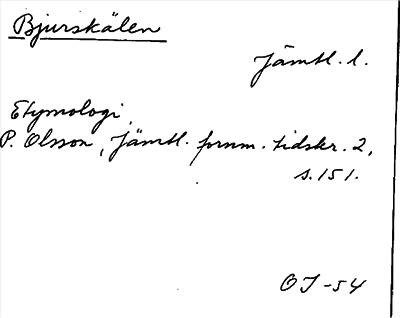 Bjurskälen
Jämtl. l.
Etymologi
P. Olsson, Jämtl. fornm. tidskr. 2,
s. 151.
OJ-54